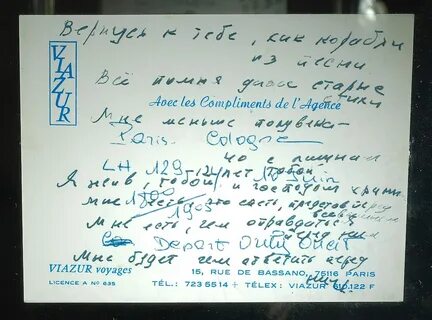 Вернусь к тебе, как корабли
из песни
Всё помня даже старые
стихи
VIAZUR
Avec les Compliments de l'Agence
Мне меньше полувека —
Paris. Cologne
LH 129
Я жив, тобой и господом храним
Мне есть, что спеть, представ перед
всевышним
Мне есть, чем оправдаться
перед ним
Depart Orly Ouest
Мне будет чем ответить перед
ним
VIAZUR voyages
15, RUE DE BASSANO, 75116 PARIS
LICENCE A N° 635
TÉL.: 723 55 14 + TÉLEX: VIAZUR 610.122 F